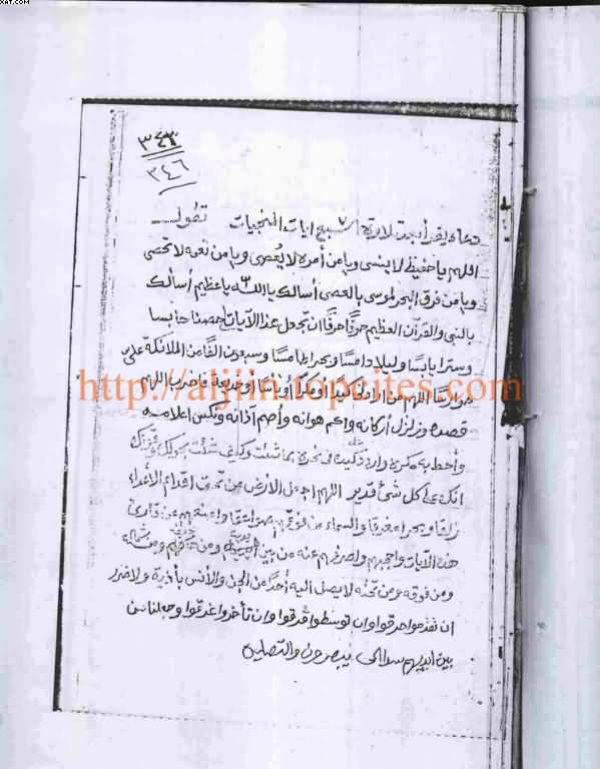 XAT.COM
٣٤٣
٣٤٦
دعاء يقرأ بعد تلاوة ٧ السبع ايات المنجيات تقول
اللهم يا حفيظ لا ينسى ويا من أمره لا يُعصى ويا من نعمه لا تحصى
ويا من فرق البحر لموسى بالعصى أسالك يا الله يا عظيم أسالك
بالنبى والقرآن العظيم حرفًا حرفًا ان تجعل هذا الآيات حصنا حابسا
وسترا يابسًا وليلا دامسًا وبحرا طامسًا وسبعون الفًا من الملائكة على
اللهم من أرادنا كيدا او مكرًا أو خديعة فاضرب اللهم
http://aljiin.topcites.com
قصده وزلزل أركانه واعم هوانه وأصم آذانه ونكس اعلامه
وأحط به مكره واردد كيده فى نحره بما شئت وكيف شئت بحولك وقوتك
انك على كل شئ قدير اللهم اجعل الارض من تحت اقدام الأعداء
زلقا وبحرا مغرقا والسماء من فوقهم صواعقا وامنعهم عن قارئ
هذه الآيات واحجبهم واصرفهم عنه من بين ومن خلفهم ومن
ومن فوقه ومن تحته لا يصل اليه أحدًا من الجن والأنس بأذية ولا ضرر
ان تقدموا حرقوا وان توسطوا فرقوا وان تأخروا غرقوا وجعلنا من
بين ايديهم سدا الى يبصرون